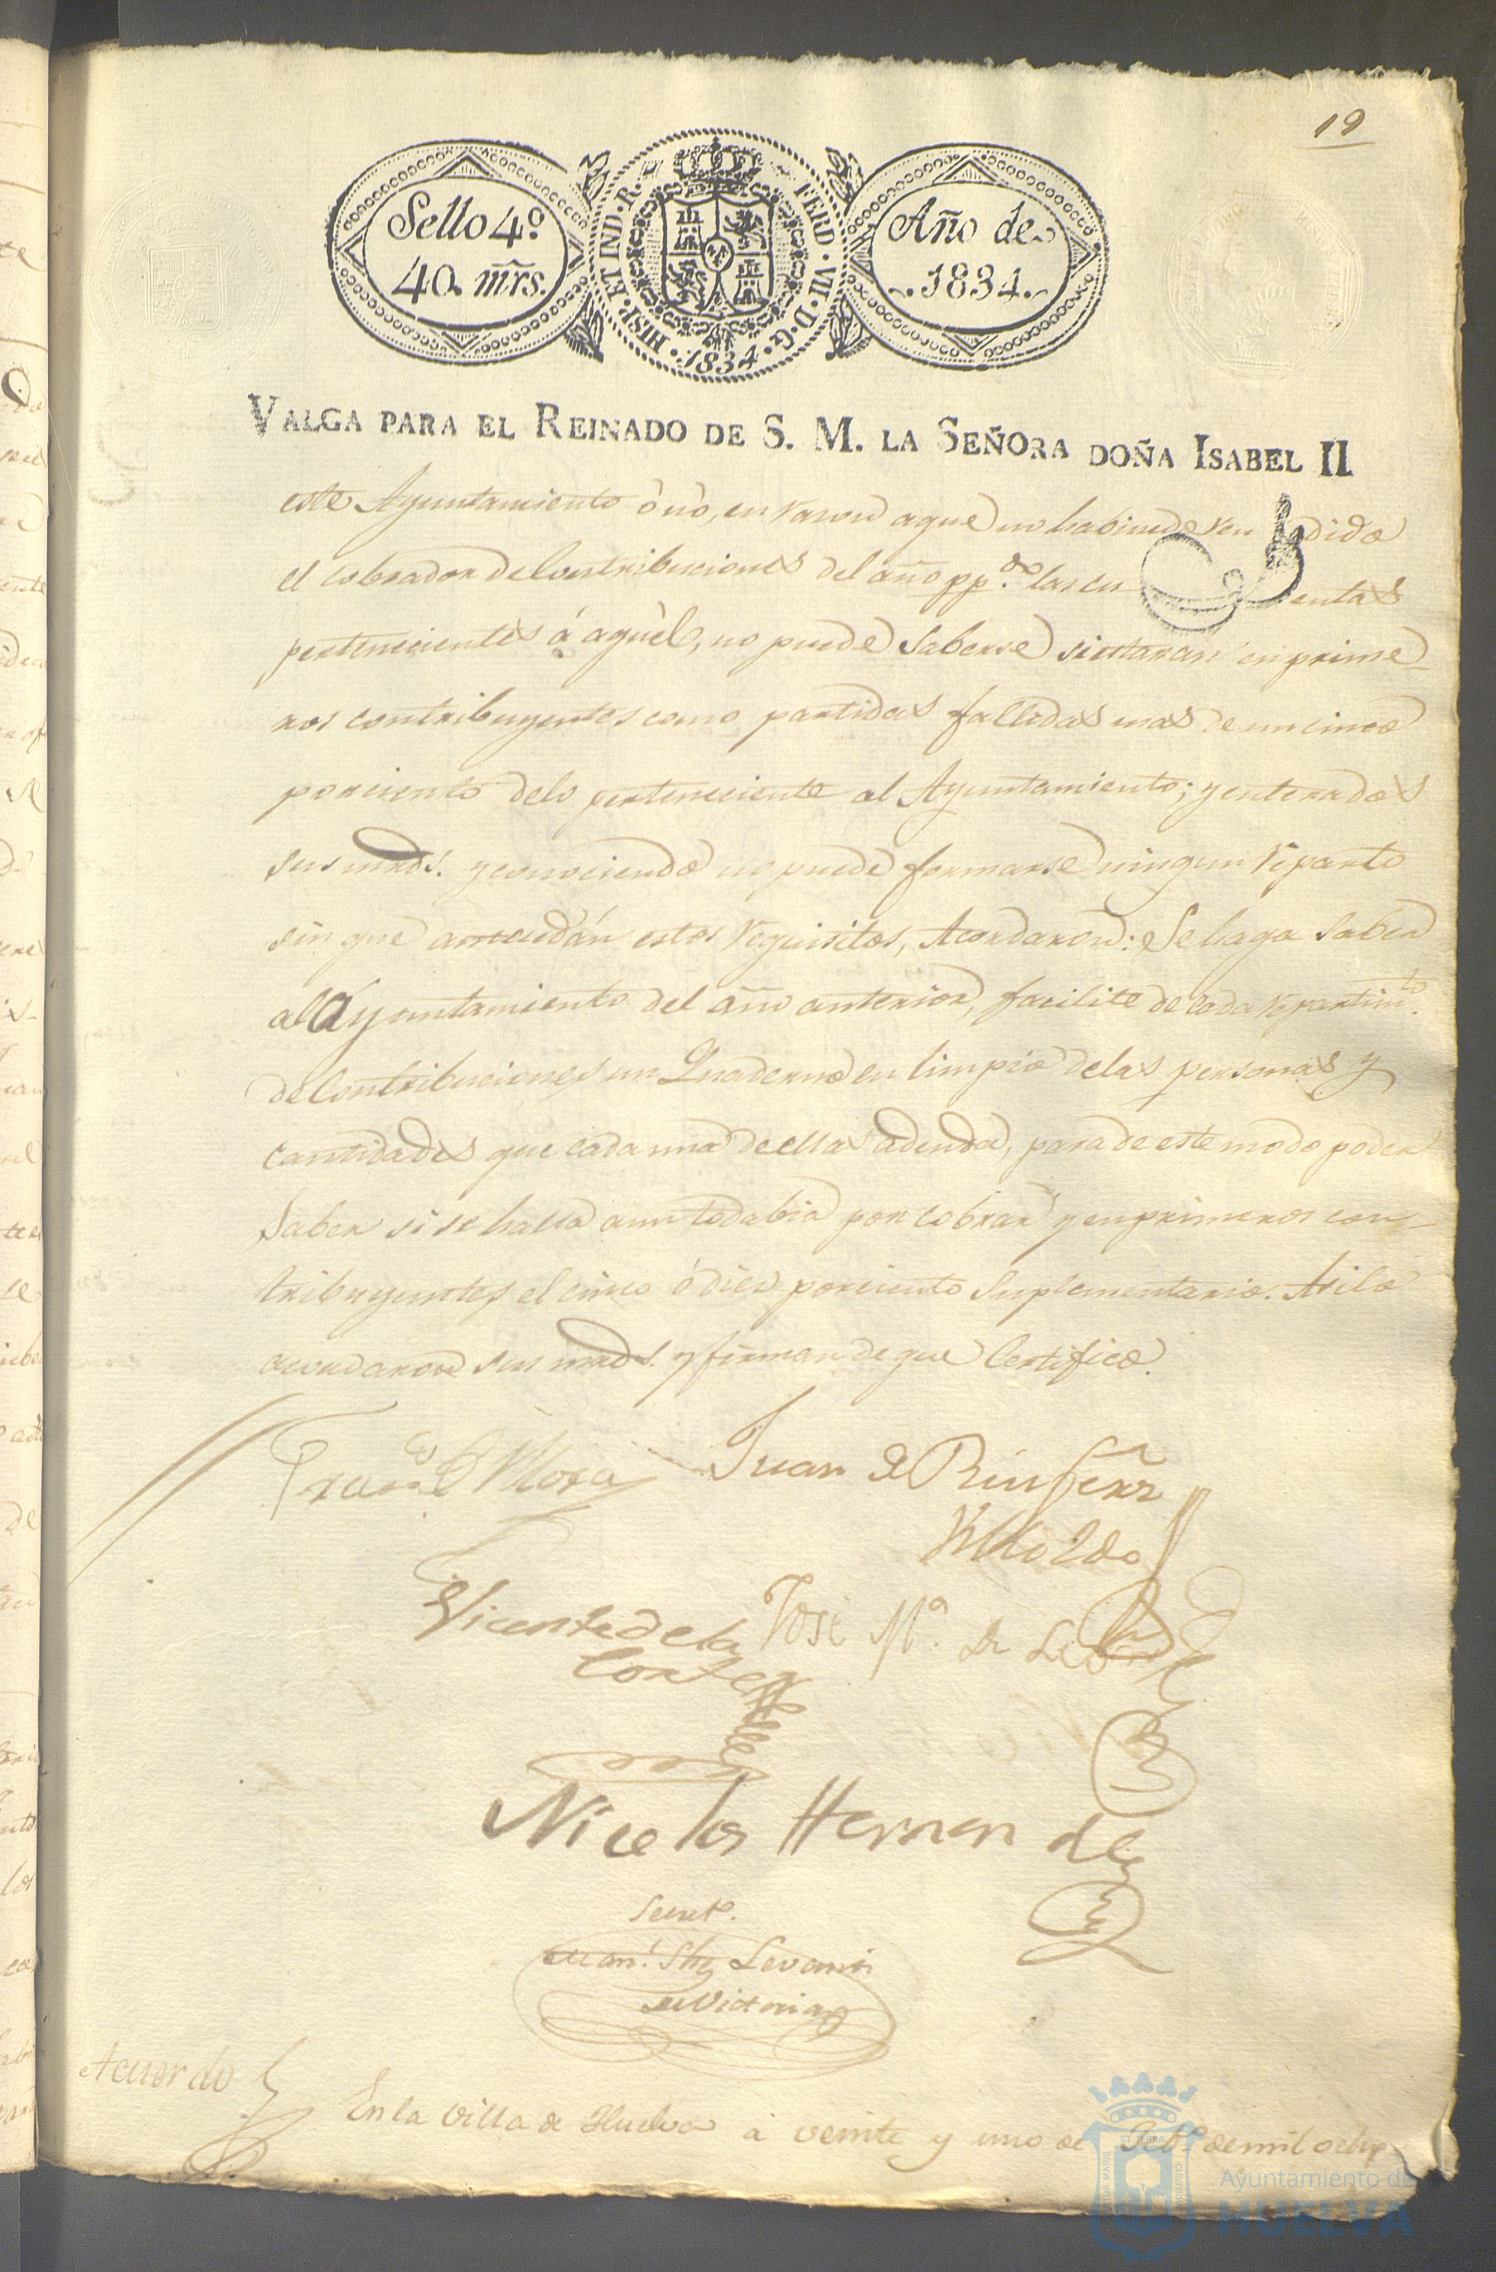 19
Sello 4º
40. mrs.
HISP. ET IND. R. FERD. VII. D. G. 1834.
Año de
1834.
VALGA PARA EL REINADO DE S. M. LA SEÑORA DOÑA ISABEL II
este Ayuntamiento ò nò, en razon aque no habiendo ren dido
el cobrador de Contribuciones del año pp.do las cu entas
pertenecientes á aquel, no puede saberse si estaran en prime
ros contribuyentes como partidas fallidas mas de un cinco
porciento delo perteneciente al Ayuntamiento; y enterados
sus mrds. y conociendo no puede formarse ningun reparto
sin que antecedán estos requisitos, Acordaron: Se haga saber
al Ayuntamiento del año anterior, facilite de cada repartim.to
de Contribuciones un Quaderno en limpio delas personas y
cantidades que cada una de ellas adeuda, para de este modo poder
saber si se halla aun todabia por cobrar y en primeros con-
tribuyentes el cinco ó diez porciento suplementario. Asi lo
acordaron sus mrds. y firman de que Certifico.
Fran.co Mora
Juan de
Vicente de la
Corte
José M.ª de
Nicolas Hernandez
Secret.º
Man.l
de Victoria
Acuerdo
En la Villa de Huelva á veinte y uno de Feb.º de mil ocho
Ayuntamiento de
HUELVA